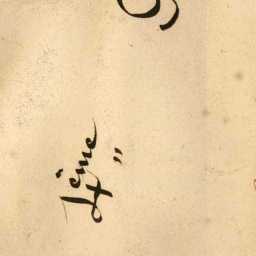 4ème "